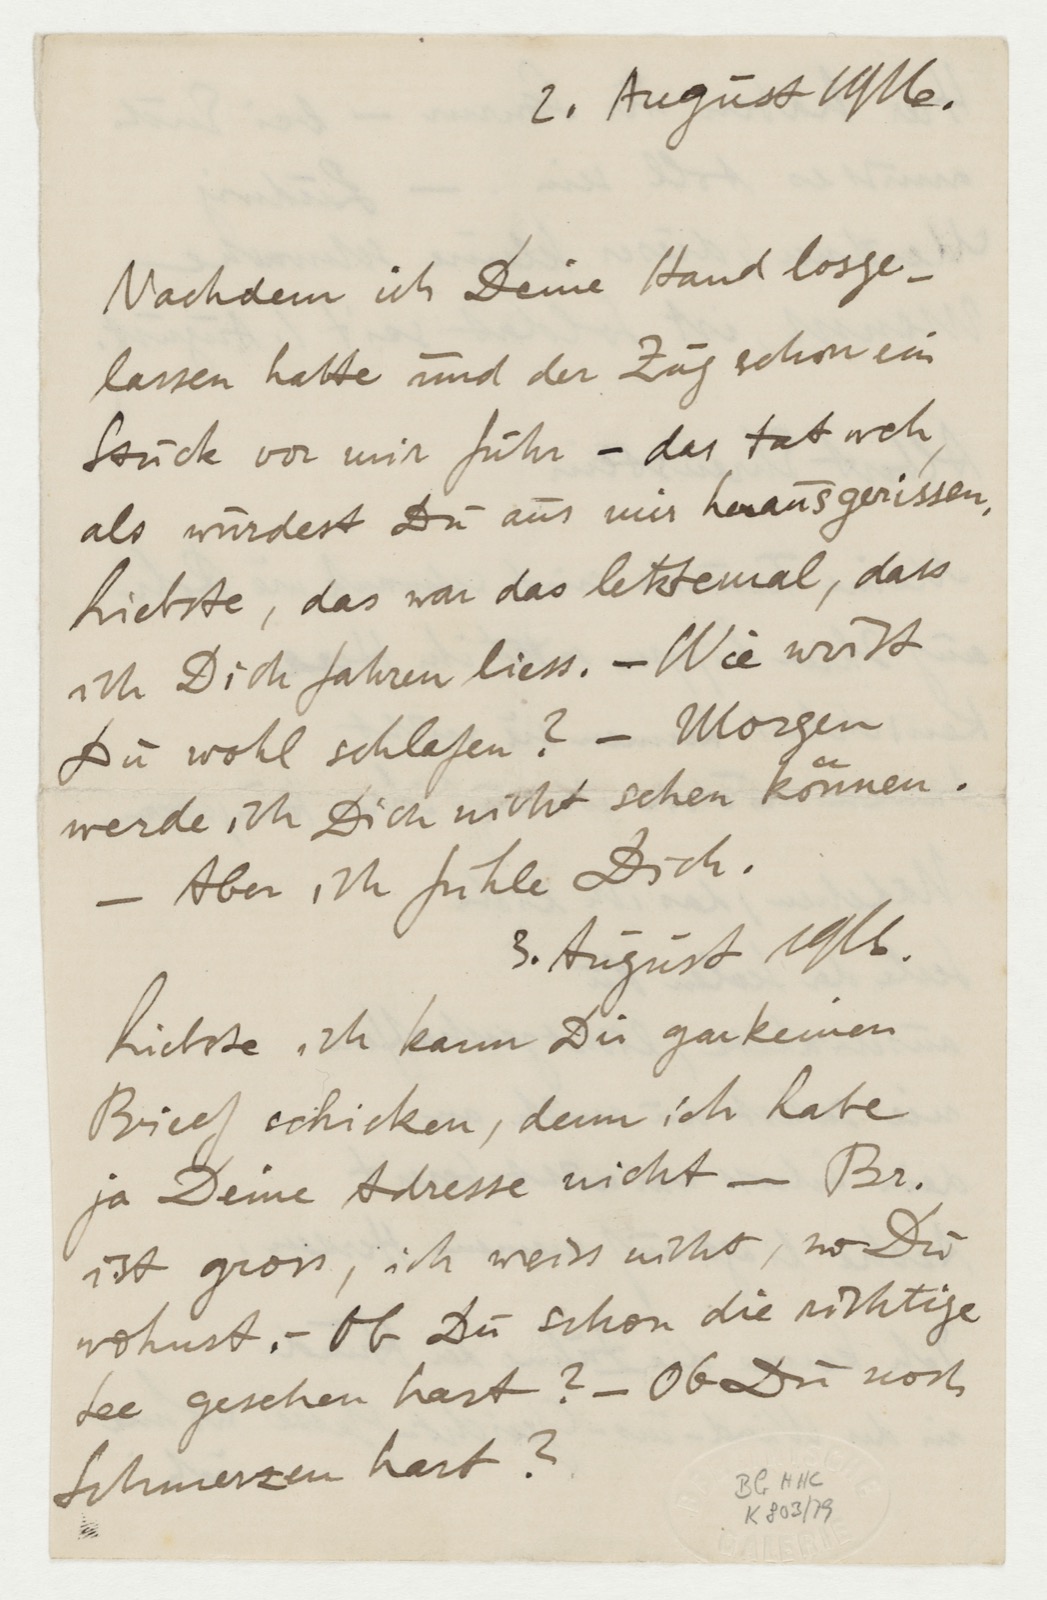 2. August 1916.
Nachdem ich Deine Hand losge-
lassen hatte und der Zug schon ein
Stück vor mir fuhr – das tat weh,
als würdest Du aus mir herausgerissen.
Liebste, das war das letztemal, dass
ich Dich fahren liess. – Wie wirst
Du wohl schlafen? – Morgen
werde ich Dich nicht sehen können.
– Aber ich fühle Dich.
3. August 1916.
Liebste ich kann Dir garkeinen
Brief schicken, denn ich habe
ja Deine Adresse nicht – Br.
ist gross, ich weiss nicht, wo Du
wohnst. – Ob Du schon die richtige
See gesehen hast? – Ob Du noch
Schmerzen hast?
BG HHC
K 803/79
GALERIE